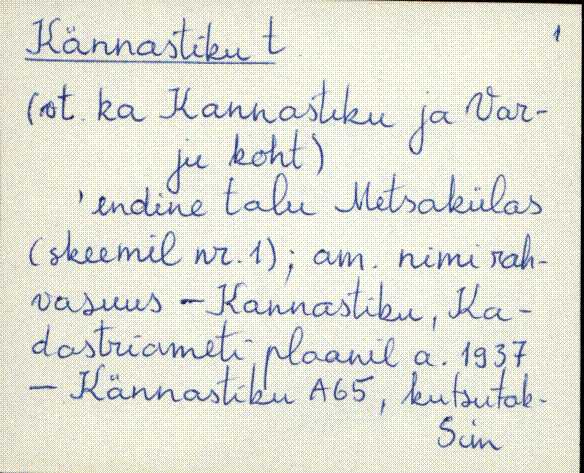 Kännastiku t. 1
(vt. ka Kannastiku ja Var-
ju koht)
'endine talu Metsakülas
(skeemil nr. 1); am. nimi rah-
vasuus – Kannastiku, Ka-
dastriameti plaanil a. 1937
– Kännastiku A65, kutsutak-
Sim